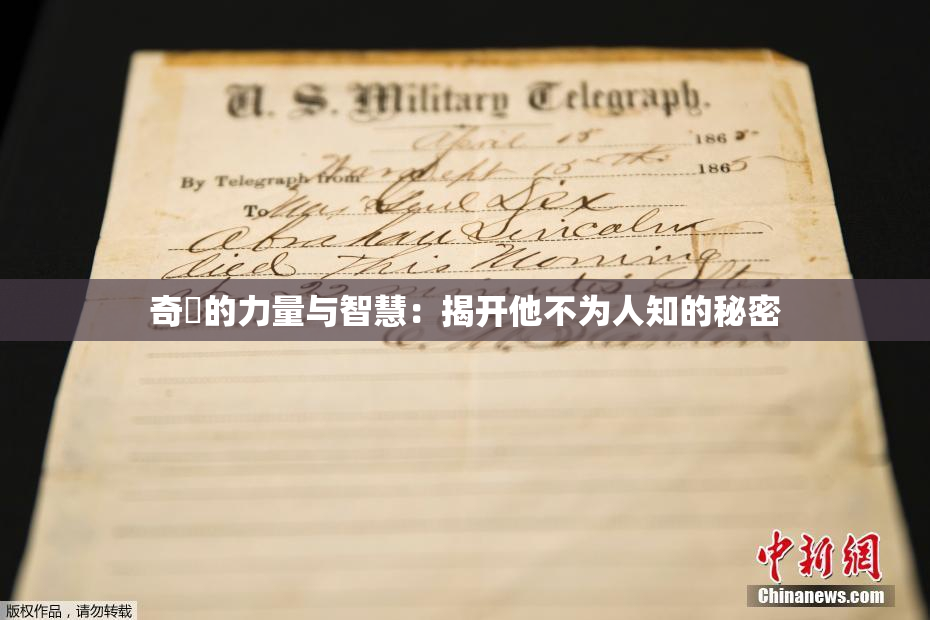 U. S. Military Telegraph.
April 15 1865
By Telegraph from War Dept 15th 1865
To Maj Genl Dix
Abraham Lincoln
died This Morning
22 minutes after
奇的力量与智慧：揭开他不为人知的秘密
E. M. Stanton
中新网
Chinanews.com
版权作品，请勿转载